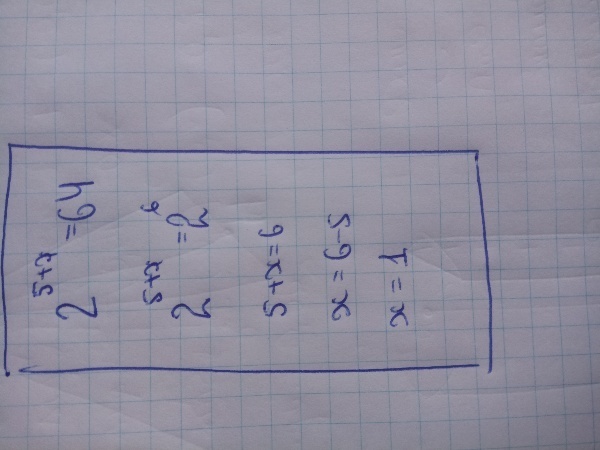 2^{5+x} = 64
2^{5+x} = 2^6
5+x=6
x = 6-5
x = 1